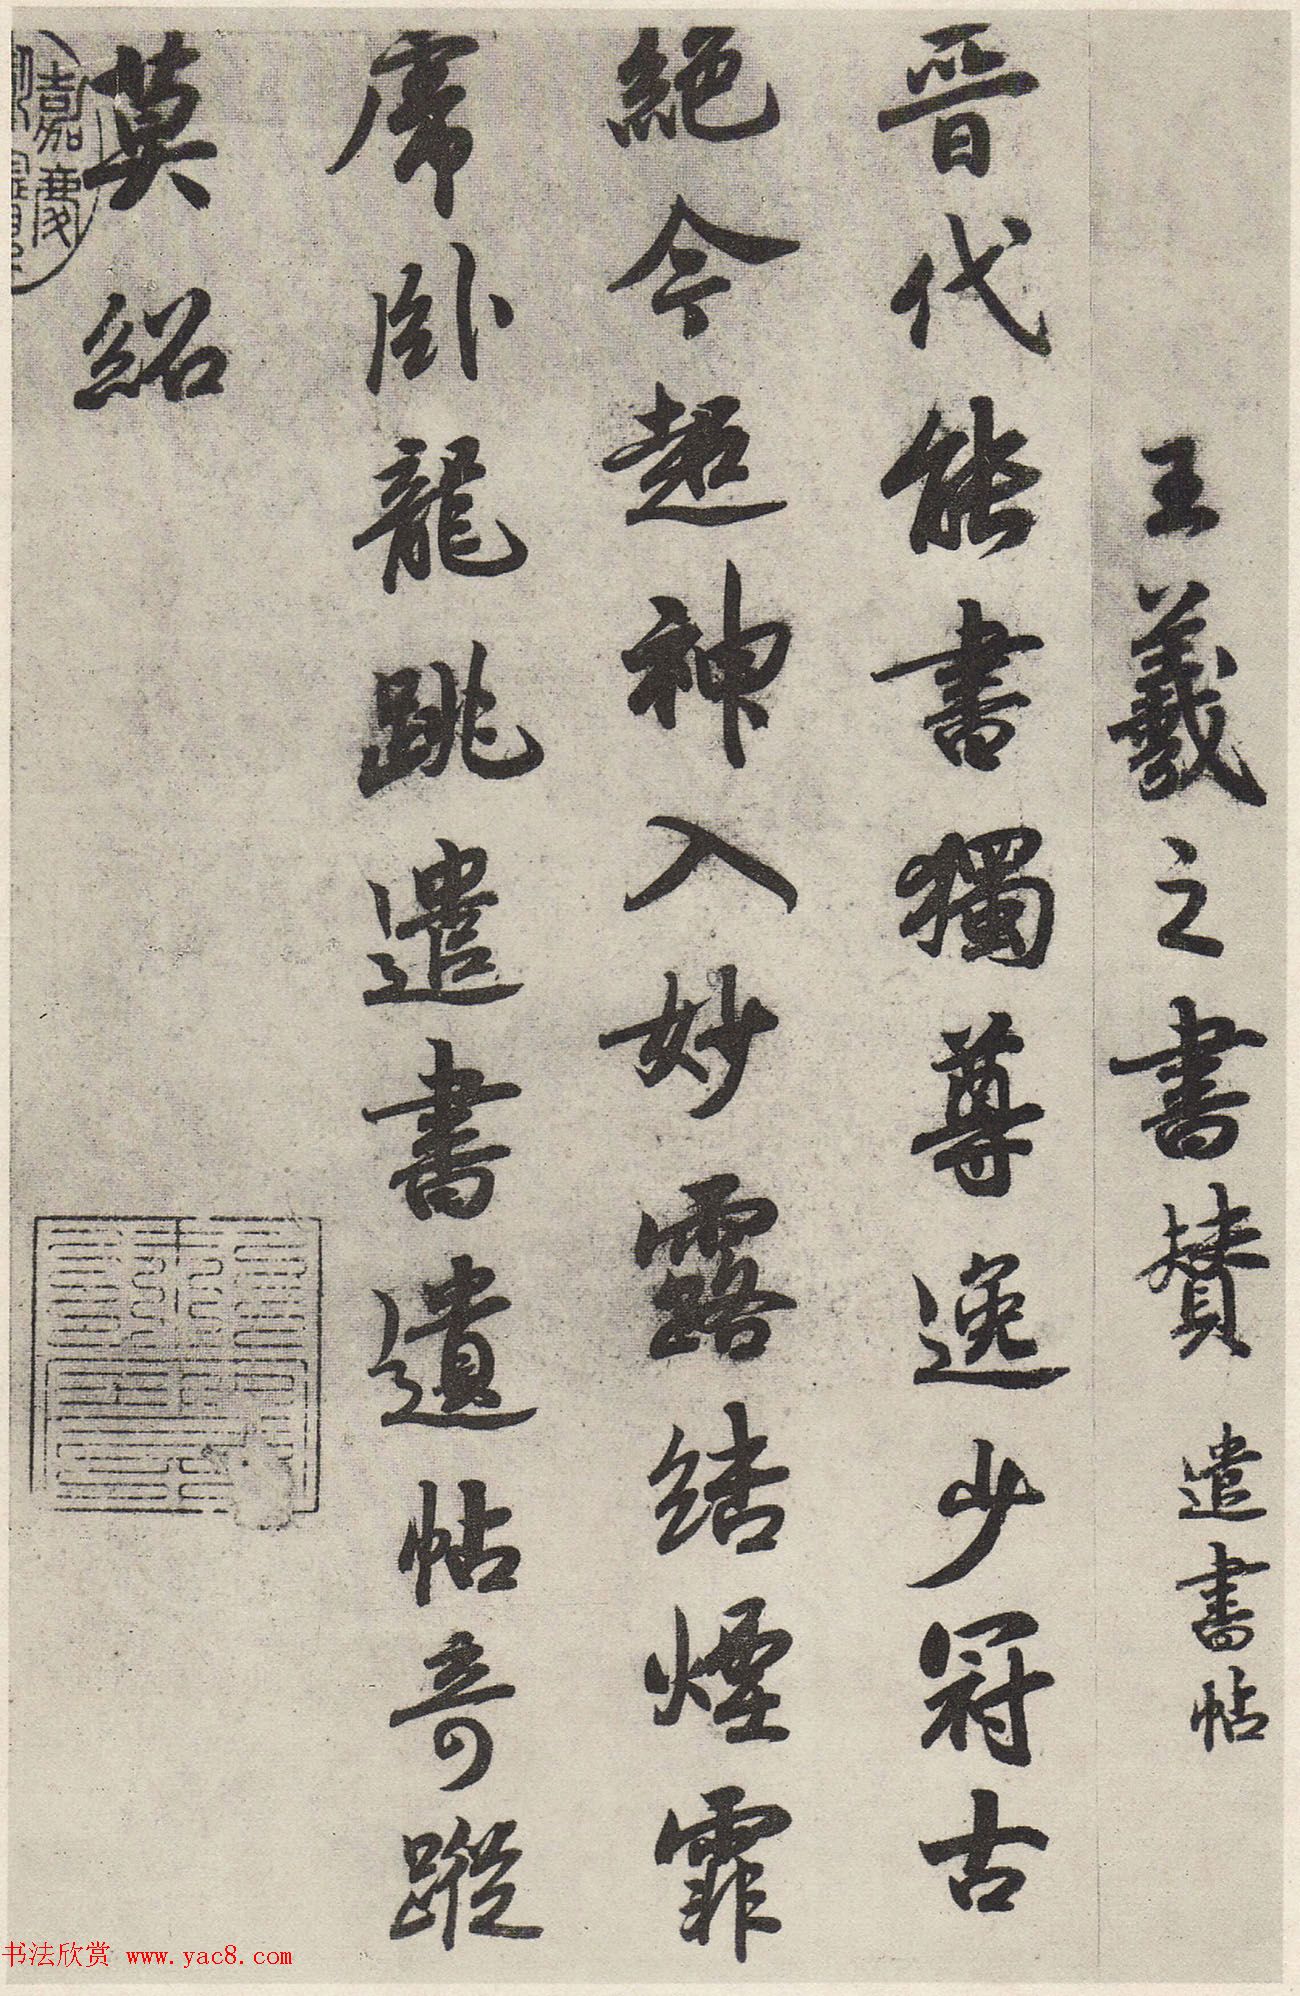 王羲之書賛 遣書帖
晉代能書獨尊逸少冠古
絕今超神入妙露結煙霏
席卧龍跳遣書遺帖奇蹤
莫紹
嘉慶
书法欣赏 www.yac8.com